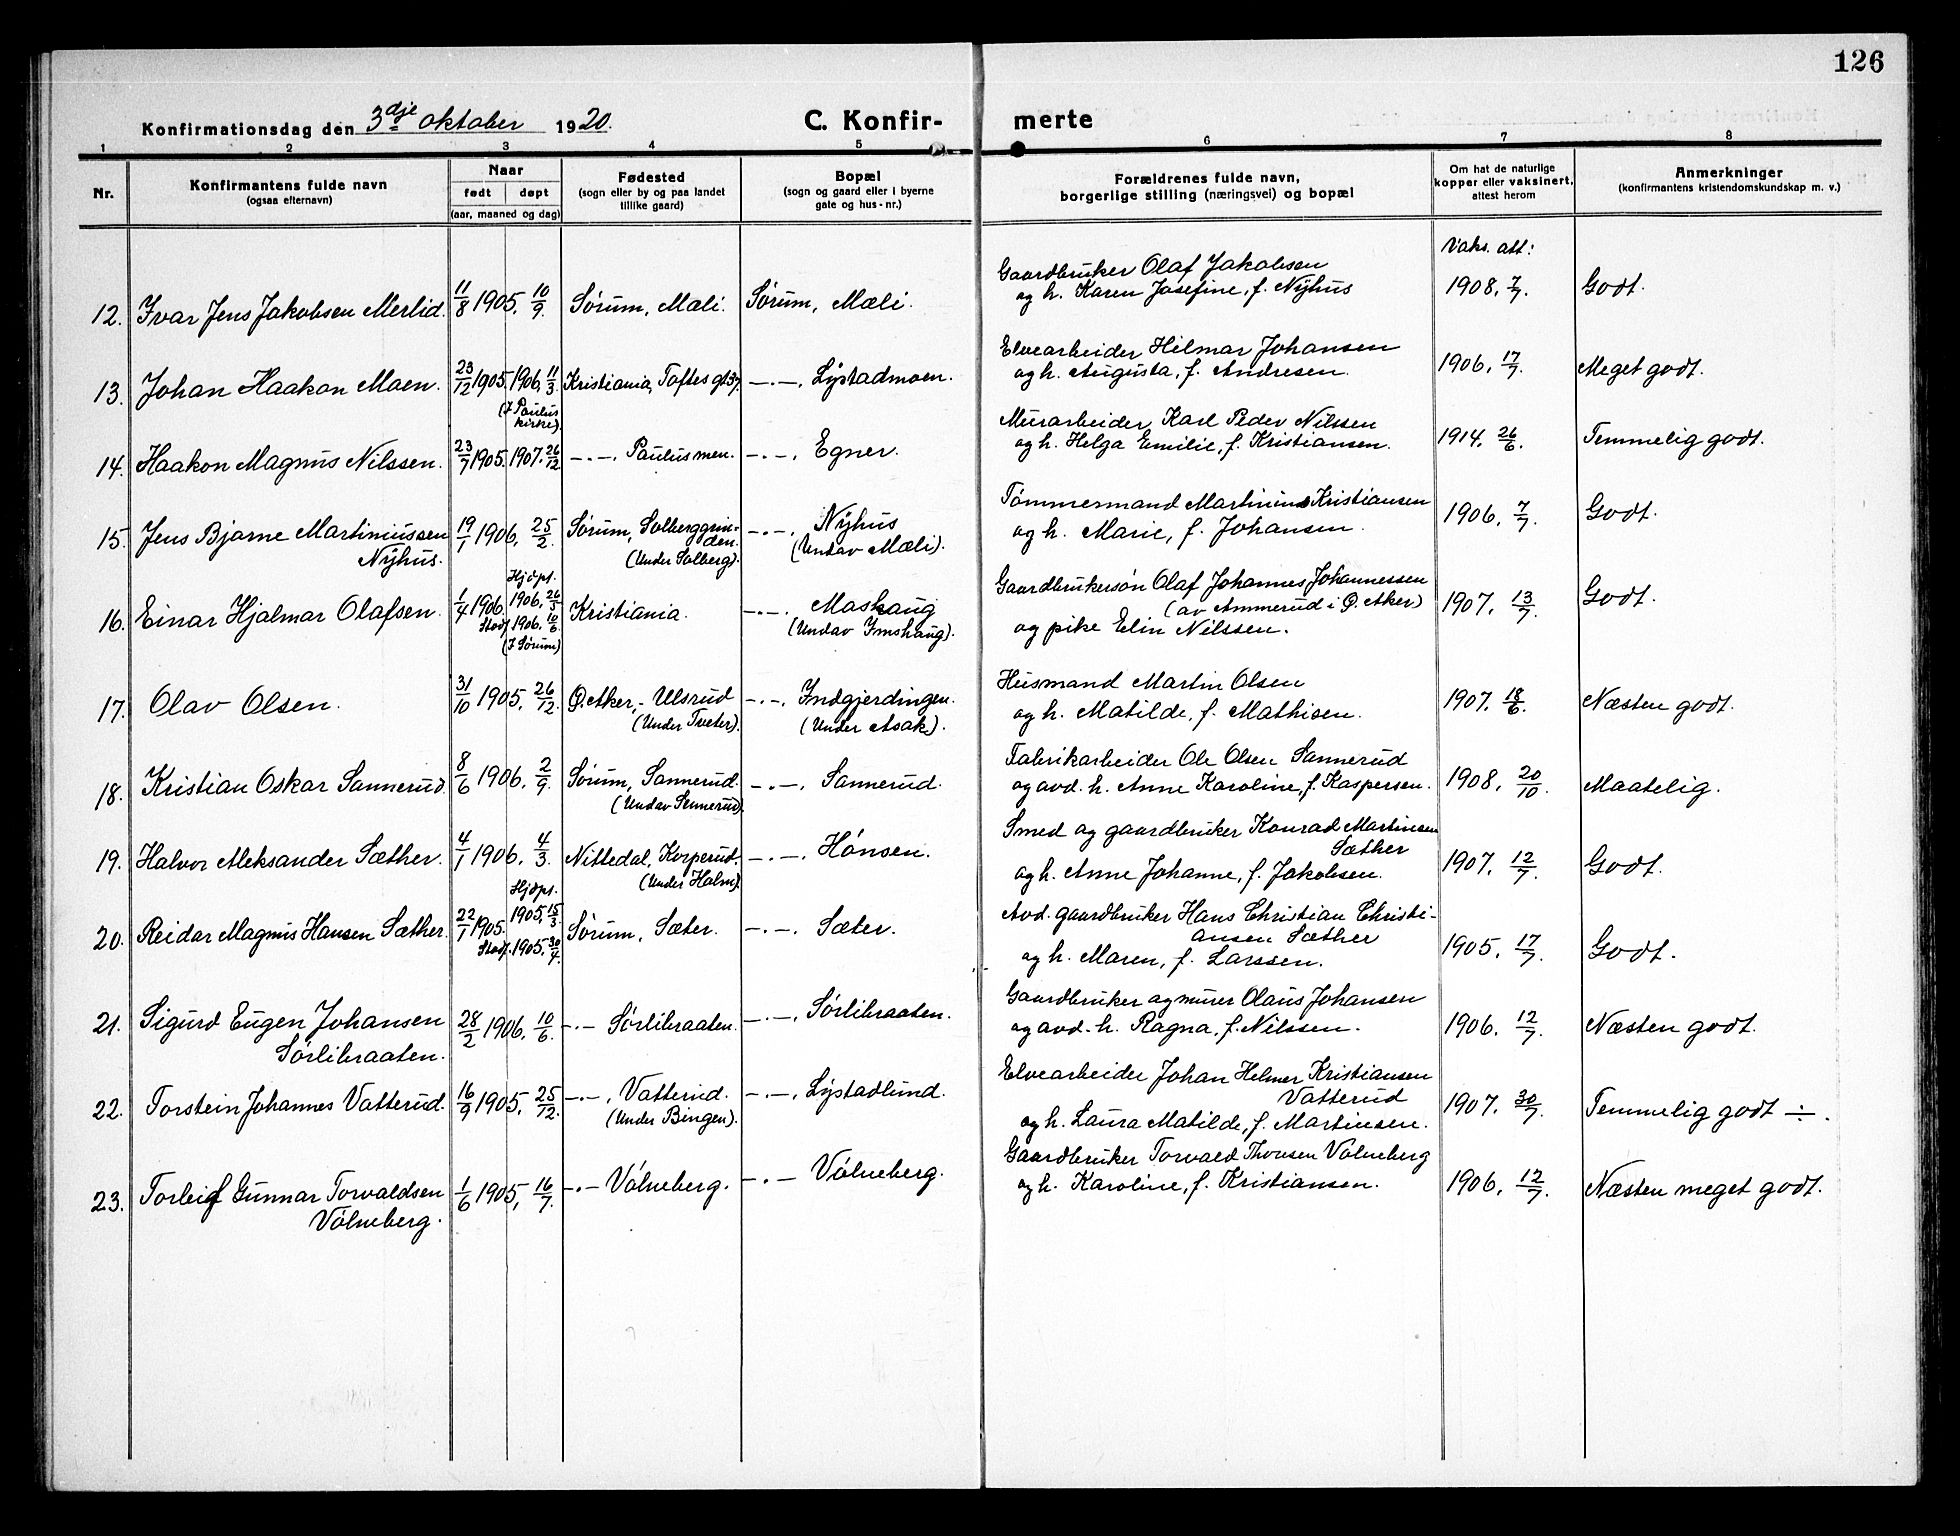 126
Konfirmationsdag den 3dje oktober 1920. C. Konfir- merte
1 2 3 4 5 6 7 8
Nr. Konfirmantens fulde navn (ogsaa efternavn) Naar født døpt (aar, maaned og dag) Fødested (sogn eller by og paa landet tillike gaard) Bopæl (sogn og gaard eller i byerne gate og hus-nr.) Forældrenes fulde navn, borgerlige stilling (næringsvei) og bopæl Om hat de naturlige kopper eller vaksinert, attest herom Anmerkninger (konfirmantens kristendomskundskap m. v.)
Vaks. att:
12. Ivar Jens Jakobsen Merlid. 11/8 1905. 10/9. Sørum, Mæli. Sørum, Mæli. Gaardbruker Olaf Jakobsen 1908. 7/7. Godt.
og h. Karen Josefine, f. Nyhus
13. Johan Haakon Moen. 23/12 1905. 1906. 11/3. (I Paulus kirke). Kristiania, Toftes gt 37. —·—. Lystadmoen. Elvearbeider Hilmar Johansen 1906. 17/7. Meget godt.
og h. Augusta, f. Andresen.
14. Haakon Magnus Nilssen. 23/7 1905. 1907. 26/12 —·—. Paulus men. —·—. Egner. Murarbeider Karl Peder Nilssen 1914. 26/6. Temmelig godt.
og h. Helga Emilie, f. Kristiansen.
15. Jens Bjarne Martiniussen 19/1 1906. 25/2. Sørum, Solberggrin- —·—. Nyhus Tømmermand Martinius Kristiansen 1906. 7/7. Godt.
Nyhus. den. (Under Solberg). (Undav Mæli). og h. Marie, f. Johansen.
16. Einar Hjalmar Olafsen. 1/4 1906. Hjdpt. 1906. 26/5 Stadf. 1906. 10/6. (I Sørum) Kristiania. —·—. Mashaug Gaardbrukersøn Olaf Johannes Johannessen 1907. 13/7. Godt.
(Undav Imshaug). (av Ammerud i Ø. Aker)
og pike Elin Nilssen.
17. Olav Olsen. 31/10 1905. 26/12. Ø. Aker,- Ulsrud —·—. Indgjerdingen. Husmand Martin Olsen 1907. 18/6. Næsten godt.
(Under Tveter). (Under Asak). og h. Matilde, f. Mathisen.
18. Kristian Oskar Sannerud. 8/6 1906. 2/9. Sørum, Sannerud. —·—. Sannerud. Fabrikarbeider Ole Olsen Sannerud 1908. 20/10. Maatelig.
(Undav Sennerud). og avd. h. Anne Karoline, f. Kaspersen.
19. Halvor Aleksander Sæther. 4/1 1906. 4/3. Nittedal, Korperud. —·—. Hønsen. Smed og gaardbruker Konrad Martinsen 1907. 12/7. Godt.
(Under Holm). Sæther
og h. Anne Johanne, f. Jakobsen.
20. Reidar Magnus Hansen Sæther. 22/1 1905. Hjdpt. 1905. 15/3 Stadf. 1905. 30/4. Sørum, Sæter. —·—. Sæter. Avd. gaardbruker Hans Christian Christi- 1905. 17/7. Godt.
ansen Sæther
og h. Maren, f. Larssen.
21. Sigurd Eugen Johansen 28/2 1906. 10/6. —·— Sørlibraaten. —·—. Sørlibraaten. Gaardbruker og murer Olaus Johansen 1906. 12/7. Næsten godt.
Sørlibraaten. og avd. h. Ragna, f. Nilssen.
22. Torstein Johannes Vatterud. 16/9 1905. 25/12. —·—. Vatterud. —·—. Lystadlund. Elvearbeider Johan Helmer Kristiansen 1907. 30/7. Temmelig godt ÷.
(Under Bingen). Vatterud
og h. Laura Matilde, f. Martinsen.
23. Torleif Gunnar Torvaldsen 1/6 1905. 16/7. —·— Vølneberg. —·— Vølneberg. Gaardbruker Torvald Thoresen Vølneberg 1906. 12/7. Næsten meget godt.
Vølneberg. og h. Karoline, f. Kristiansen.